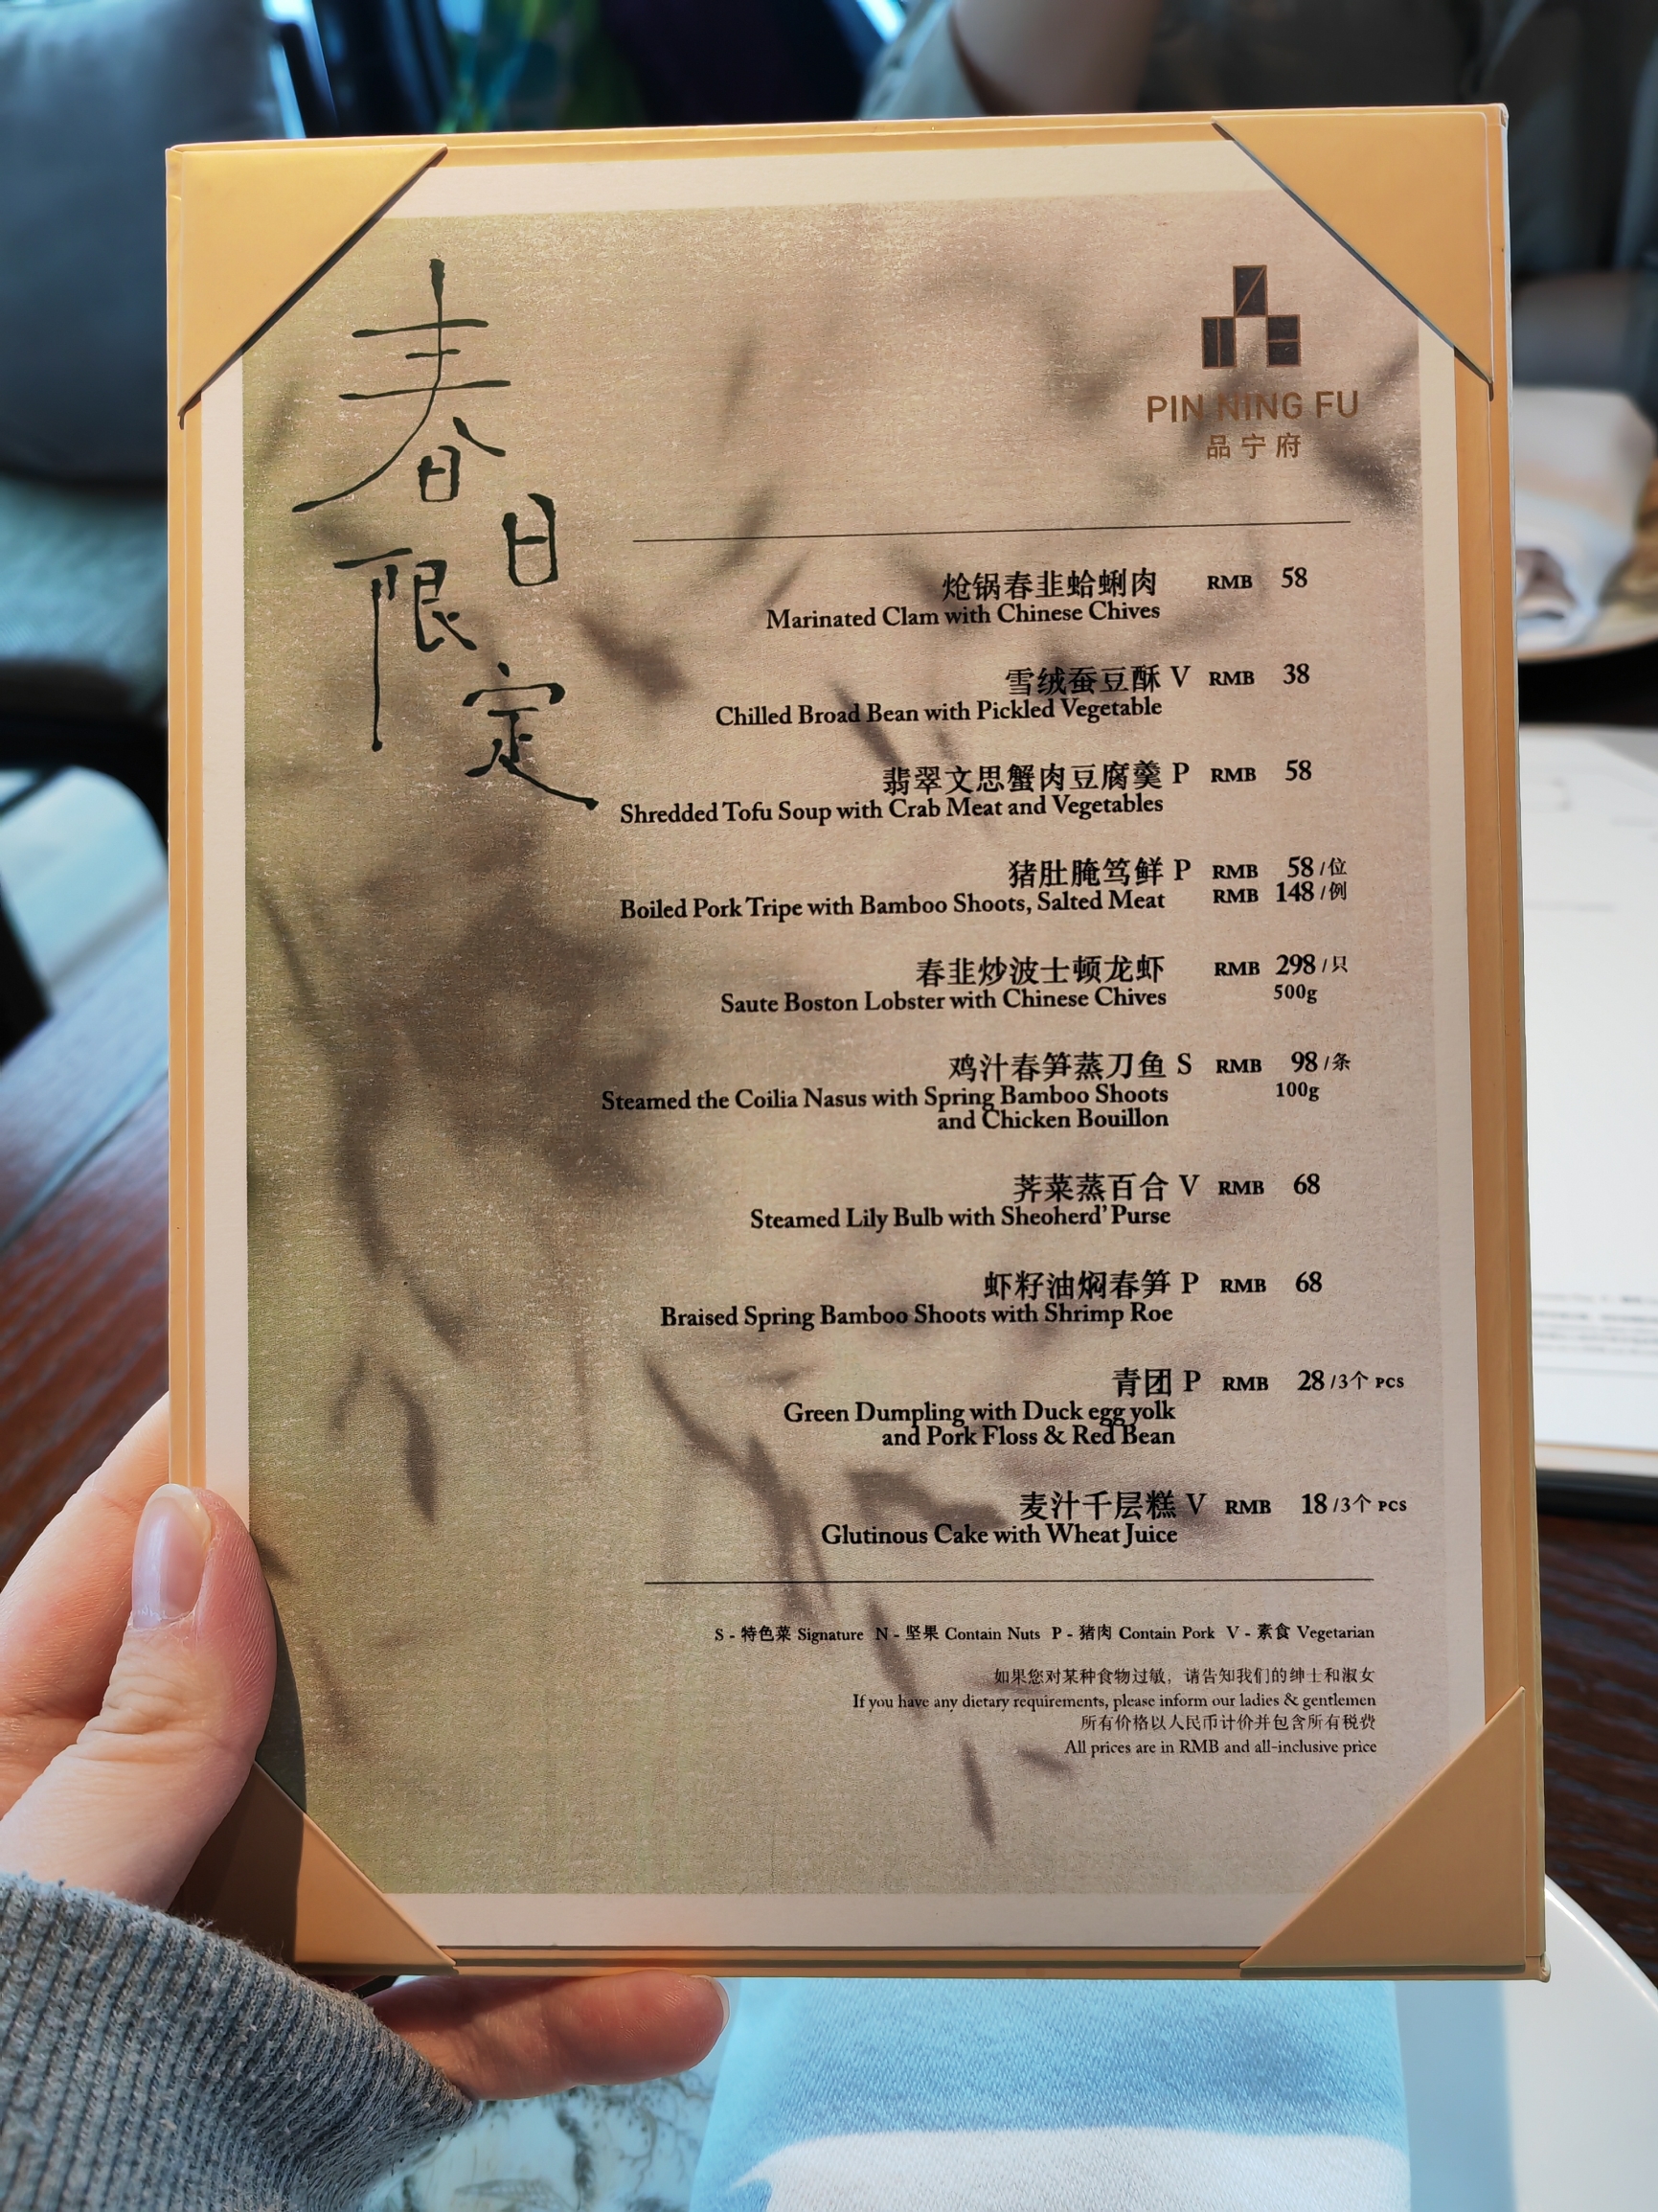 春日
限定
PIN NING FU
品宁府
炝锅春韭蛤蜊肉 RMB 58
Marinated Clam with Chinese Chives
雪绒蚕豆酥 V RMB 38
Chilled Broad Bean with Pickled Vegetable
翡翠文思蟹肉豆腐羹 P RMB 58
Shredded Tofu Soup with Crab Meat and Vegetables
猪肚腌笃鲜 P RMB 58 /位
Boiled Pork Tripe with Bamboo Shoots, Salted Meat RMB 148 /例
春韭炒波士顿龙虾 RMB 298 /只
Saute Boston Lobster with Chinese Chives 500g
鸡汁春笋蒸刀鱼 S RMB 98 /条
Steamed the Coilia Nasus with Spring Bamboo Shoots 100g
and Chicken Bouillon
荠菜蒸百合 V RMB 68
Steamed Lily Bulb with Sheoherd' Purse
虾籽油焖春笋 P RMB 68
Braised Spring Bamboo Shoots with Shrimp Roe
青团 P RMB 28 /3个 PCS
Green Dumpling with Duck egg yolk
and Pork Floss & Red Bean
麦汁千层糕 V RMB 18 /3个 PCS
Glutinous Cake with Wheat Juice
S - 特色菜 Signature N - 坚果 Contain Nuts P - 猪肉 Contain Pork V - 素食 Vegetarian
如果您对某种食物过敏，请告知我们的绅士和淑女
If you have any dietary requirements, please inform our ladies & gentlemen
所有价格以人民币计价并包含所有税费
All prices are in RMB and all-inclusive price